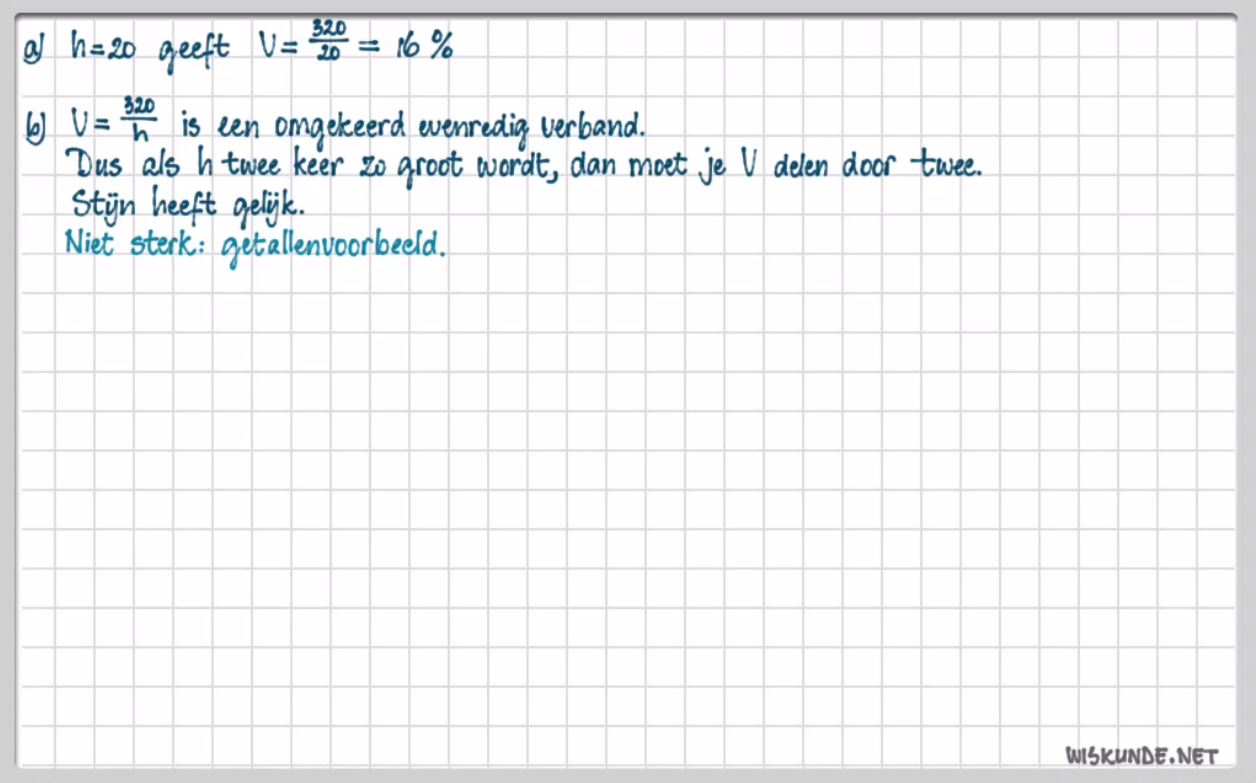 a) h=20 geeft V= 320/20 = 16 %
b) V= 320/h is een omgekeerd evenredig verband.
Dus als h twee keer zo groot wordt, dan moet je V delen door twee.
Stijn heeft gelijk.
Niet sterk: getallenvoorbeeld.
WISKUNDE.NET